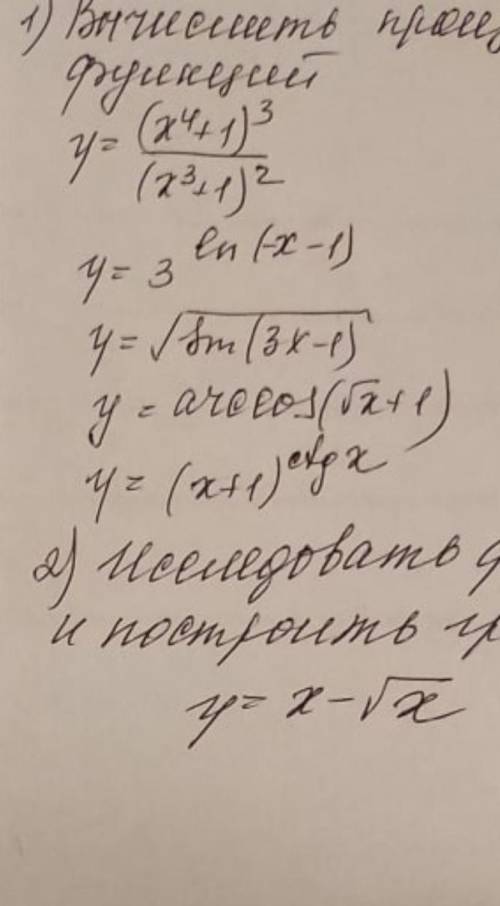 1) Вычислить произ
функций
y = (x⁴+1)³ / (x³+1)²
y = 3^ln(-x-1)
y = √sin(3x-1)
y = arccos(√x+1)
y = (x+1)^ctg x
2) Исследовать ф
и построить гр
y = x - √x